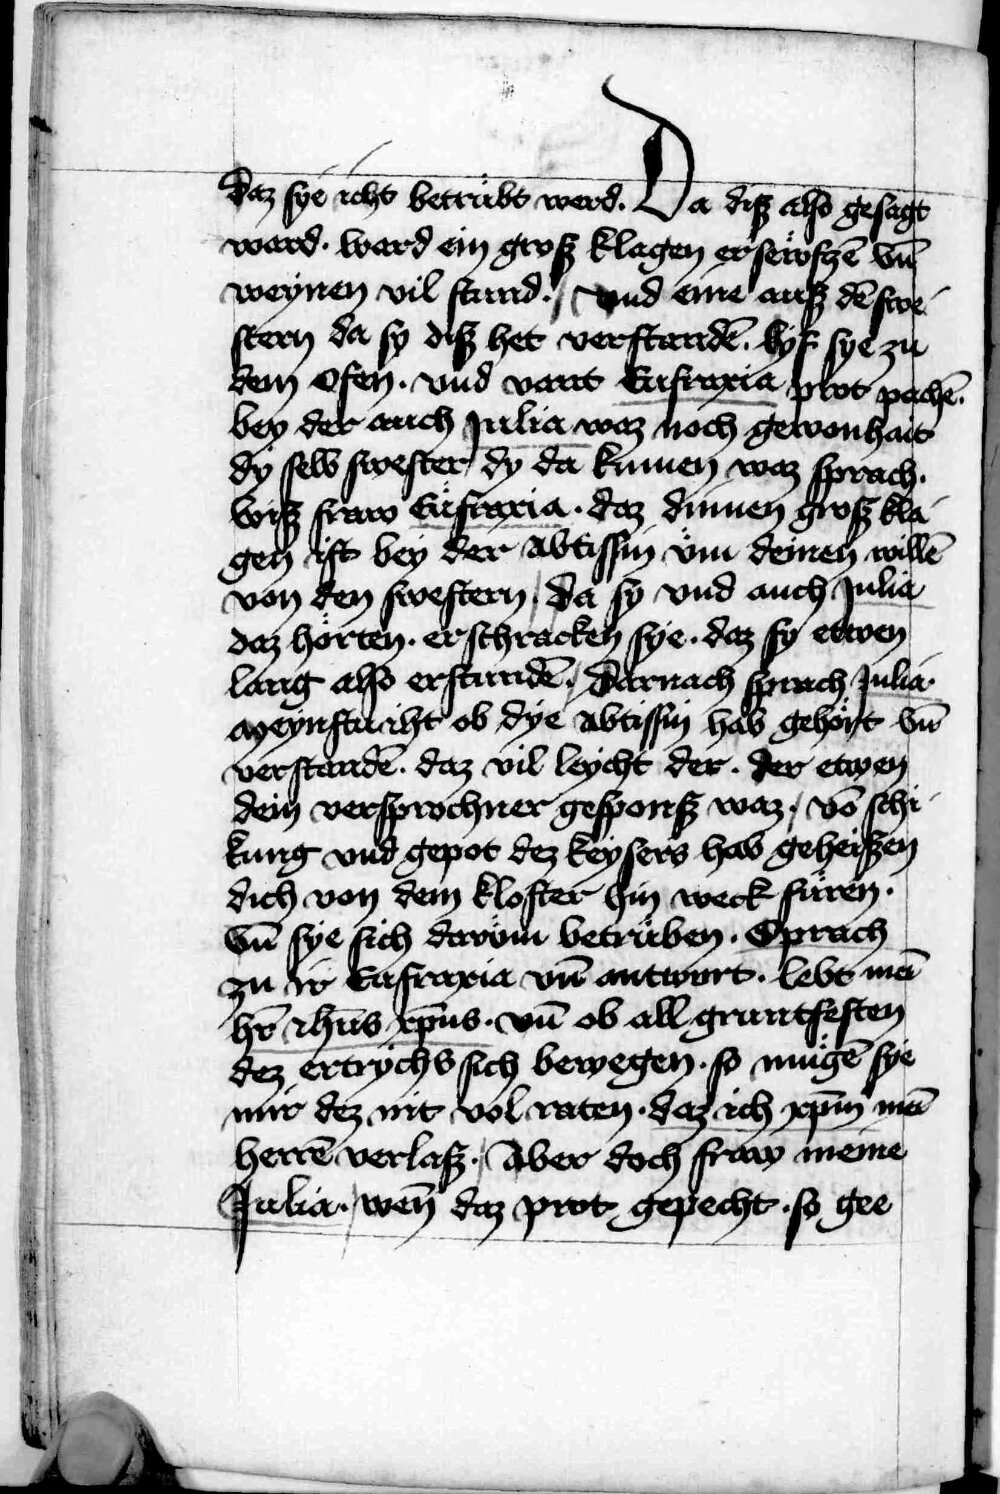 daz sye icht betrübt werd. Da disz also gesagt
ward. ward ein grosz klagen erseẅfczē vn̄
weynen vil stund. / vnd eine ausz dē swe
stern da sy disz het verstandē. lyf sye zu
dem ofen. vnd vant Eufraxia prot pachē.
bey der auch Julia waz noch gewonhait
dy selb swester dy da kumen waz sprach.
wisz fraw Eüfraxia. daz dinnen grosz kla
gen ist bey der abtissin vm̈ deinen willē
von den swestern / Da sy vnd auch Julia
daz hörten. erschracken sye. daz sy etwen
lang also erstundē. / Darnach sprach Julia.
meynstu iht ob dye abtissin hab gehört vn̄
verstandē. daz vil leycht der. der etwen
dein versprochner gesponsz waz. / vō schi
kung vnd gepot dez keysers hab geheiszen
dich von dem kloster hin weck füren.
vn̄ sye sich darvm̈ betrüben. Sprach
zu ir Eufraxia vn̄ antwurt. lebt mei̅
hr̄ ihūs xp̄us. vn̄ ob all gruntfesten
dez ertrychs sich bewegen. so mügē sye
mir dez nit vol raten. daz ich xp̄m mei̅
herrē verlasz. / Aber doch fraw meine
Julia. / wen̄ daz prot gepecht. so gee